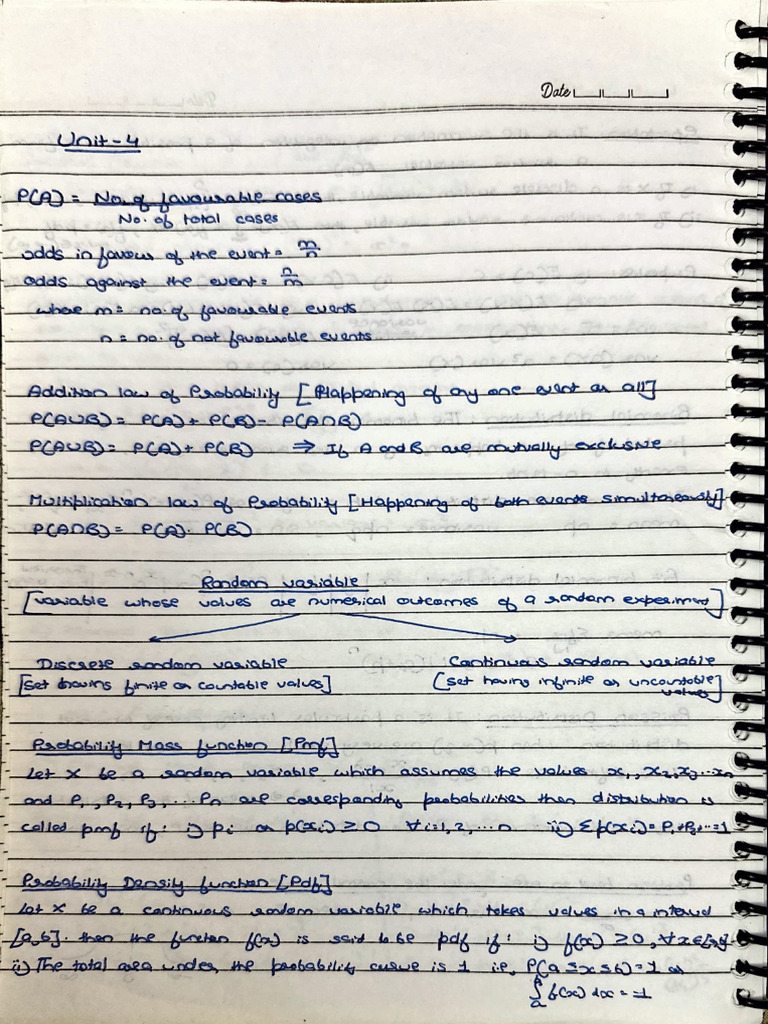 Date
Unit-4
P(A) = No. of favourable cases
No. of total cases
odds in favour of the event = m/n
odds against the event = n/m
where m = no. of favourable events
n = no. of not favourable events
Addition law of Probability [Happening of any one event or all]
P(A∪B) = P(A) + P(B) - P(A∩B)
P(A∪B) = P(A) + P(B) ⇒ If A and B are mutually exclusive
Multiplication law of Probability [Happening of both events simultaneously]
P(A∩B) = P(A). P(B)
Random variable
[variable whose values are numerical outcomes of a random experiment]
Discrete random variable Continuous random variable
[set having finite or countable values] [set having infinite or uncountable
values]
Probability Mass function [Pmf]
Let X be a random variable which assumes the values x₁, x₂, x₃...xn
and P₁, P₂, P₃, ...Pn are corresponding probabilities then distribution is
called pmf if: i) pi or p(xi) ≥ 0 ∀ i=1,2,...n ii) Σp(xi) = P₁+P₂+...=1
Probability Density function [Pdf]
Let X be a continuous random variable which takes values in a interval
[a,b]. then the function f(x) is said to be pdf if: i) f(x) ≥ 0, ∀x∈[a,b]
ii) The total area under the probability curve is 1 i.e, P(a≤x≤b)=1 or
∫ f(x) dx = 1